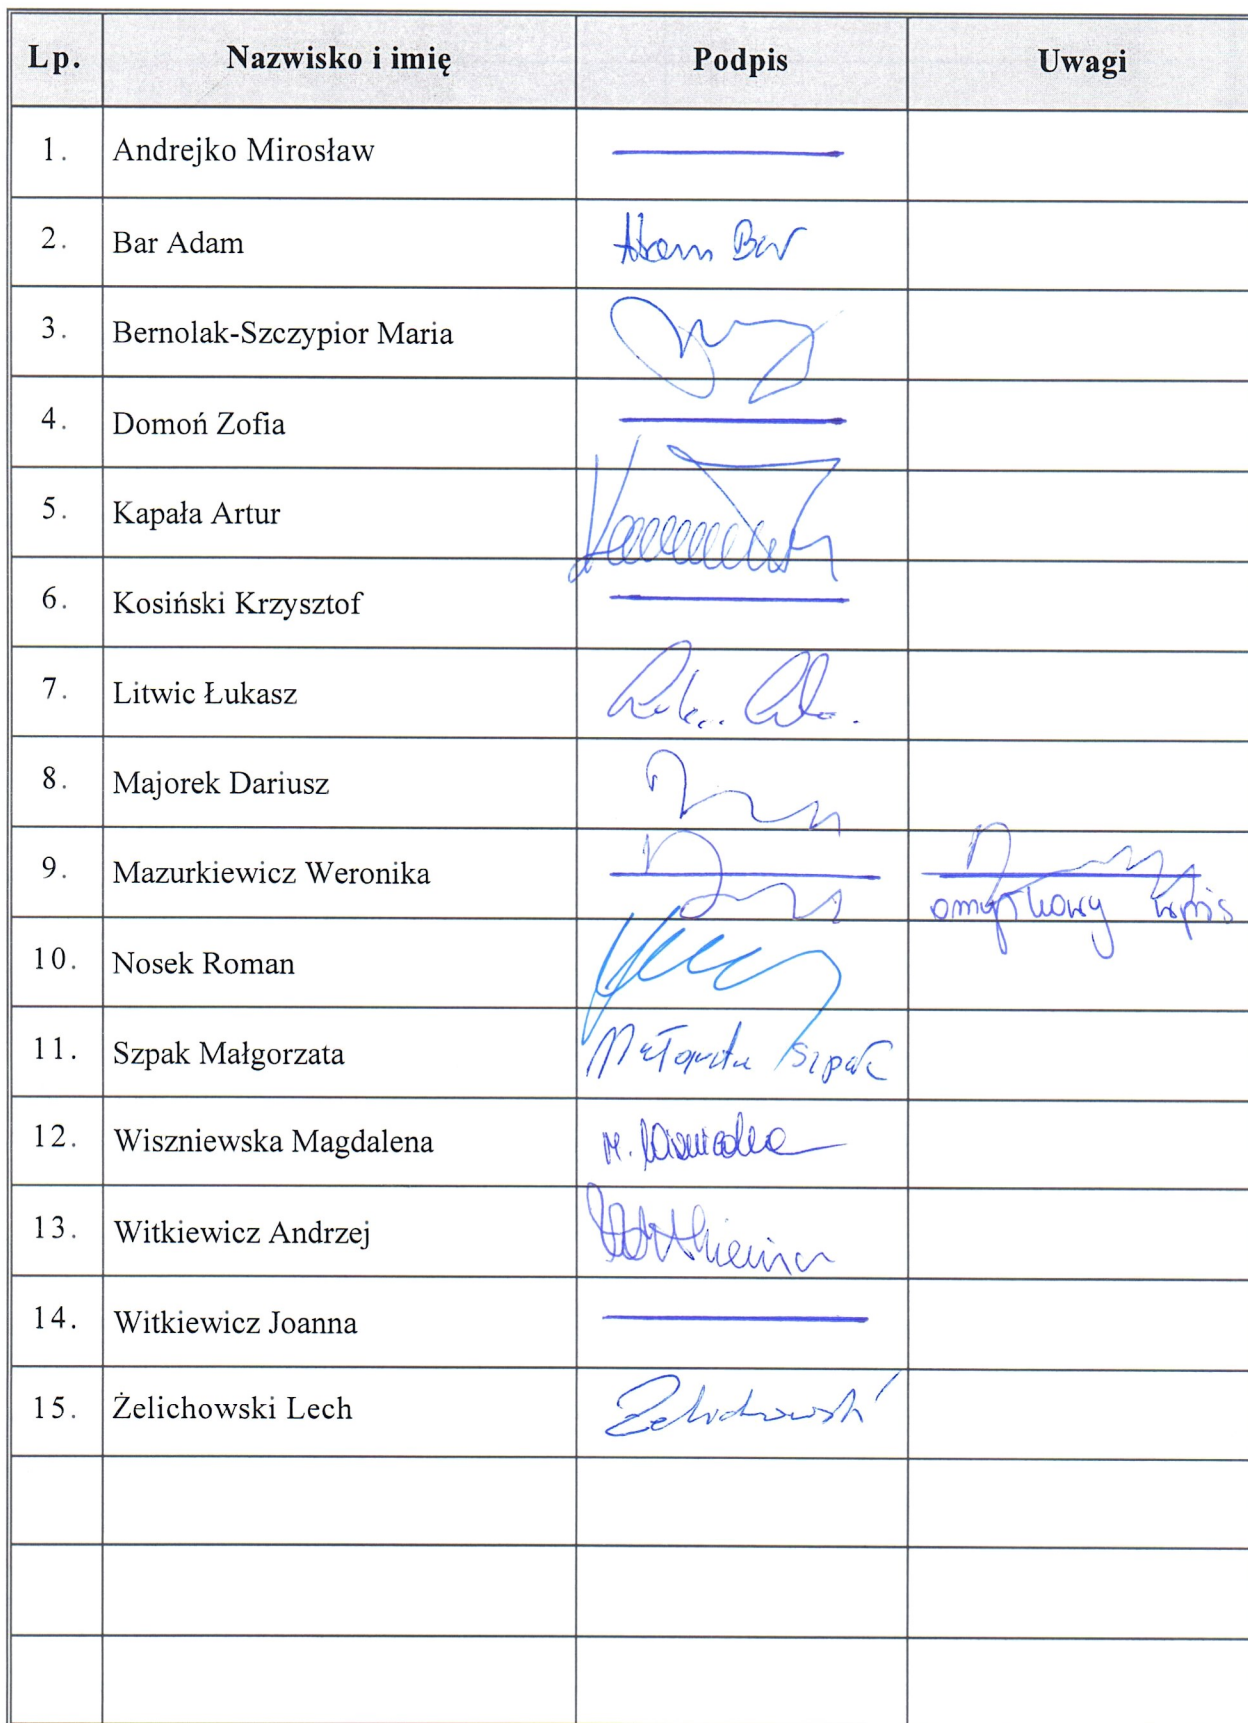 Lp. Nazwisko i imię Podpis Uwagi
1. Andrejko Mirosław
2. Bar Adam Adam Bar
3. Bernolak-Szczypior Maria
4. Domoń Zofia
5. Kapała Artur
6. Kosiński Krzysztof
7. Litwic Łukasz
8. Majorek Dariusz
9. Mazurkiewicz Weronika omyłkowy wpis
10. Nosek Roman
11. Szpak Małgorzata Małgorzata Szpak
12. Wiszniewska Magdalena
13. Witkiewicz Andrzej
14. Witkiewicz Joanna
15. Żelichowski Lech Żelichowski